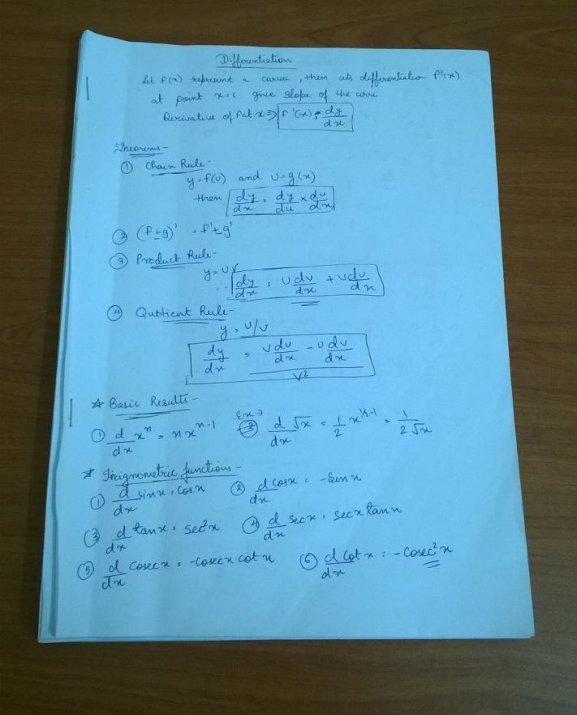 Differentiation
Let f(x) represent a curve, then its differentiation f'(x)
at point x=c give slope of the curve
Derivative of f at x ⇒ f'(x) = dy/dx
Theorems-
① Chain Rule-
y = f(u) and u = g(x)
then dy/dx = dy/du × du/dx
② (f±g)' = f'±g'
③ Product Rule-
y = uv
dy/dx = u dv/dx + v du/dx
④ Quotient Rule-
y = u/v
dy/dx = (v du/dx - u dv/dx)/v²
* Basic Results-
① d/dx xⁿ = n xⁿ⁻¹ Ex→ ② d/dx √x = 1/2 x^(1/2-1) = 1/(2√x)
* Trignometric functions-
① d/dx sinx = cosx ② d/dx cosx = -sinx
③ d/dx tanx = sec²x ④ d/dx secx = secx tanx
⑤ d/dx cosecx = -cosecx cotx ⑥ d/dx cotx = -cosec²x